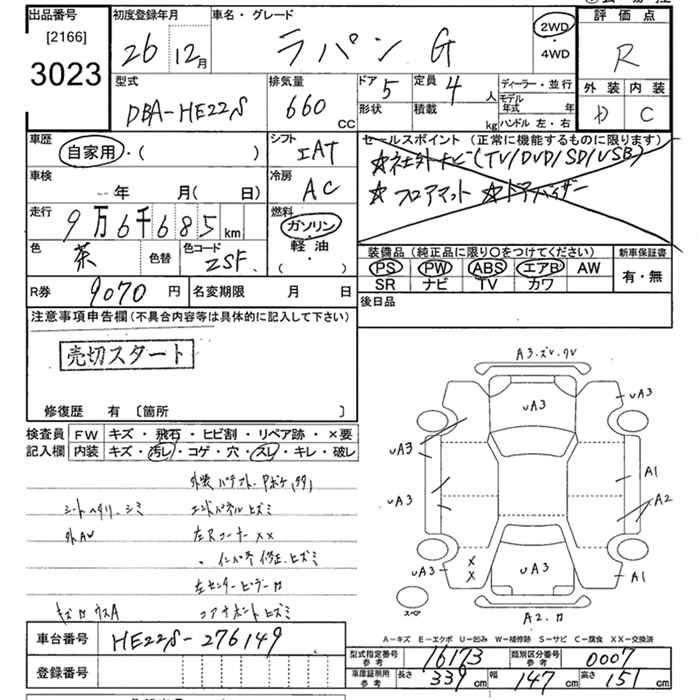 出品番号
[2166]
3023
初度登録年月
26 12月
車名・グレード
ラパン G
2WD
・
4WD
評価点
R
外装 内装
D C
型式
DBA-HE22S
排気量
660 CC
ドア 5
定員 4 人
形状
積載 kg
ディーラー・並行
モデル年式 年
ハンドル 左・右
車歴
自家用・( )
シフト
IAT
セールスポイント (正常に機能するものに限ります)
☆社外ナビ(TV/DVD/SD/USB)
☆フロアマット ☆ドアバイザー
車検
年 月( 日)
冷房
AC
走行
9万6千685km
燃料
ガソリン
軽油
( ・ )
色
茶
色替
色コード
ZSF
装備品 (純正品に限り〇をつけてください)
PS PW ABS エアB AW
SR ナビ TV カワ
新車保証書
有・無
R券
9070円
名変期限 月 日
後日品
注意事項申告欄 (不具合内容等は具体的に記入して下さい)
売切スタート
修復歴 有 〔箇所 〕
検査員記入欄
FW キズ・飛石・ヒビ割・リペア跡・×要
内装 キズ・汚レ・コゲ・穴・スレ・キレ・破レ
シートヘタリ、シミ
外AW
エンドパネルヒズミ
左Rコーナー XX
・インパネ修正、ヒズミ
左センターピラー
コアサポートヒズミ
A3.ズレ.ワレ
UA3
UA3
UA3
UA3
A1
A2
UA3
UA3
A1
X
X
スペア
A2.
A-キズ E-エクボ U-凹み W-補修跡 S-サビ C-腐食 XX-交換済
車台番号
HE22S-276149
登録番号
型式指定番号 参考
16173
類別区分番号 参考
0007
車庫証明用 参考
長さ 339cm
幅 147cm
高さ 151cm